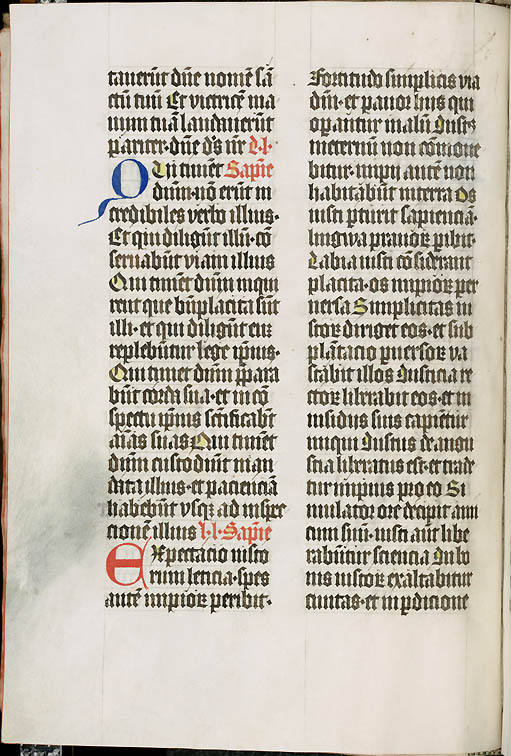 tauerūt dn̄e nomē sā
ctū tuū Et victricē ma
num tuā laudauerūt
pariter · dn̄e d's nr̄ l. l.
Qui timēt Sapīe
dūm · nō erūt in
credibiles verbo illius ·
Et qui diligūt illū · cō
seruabūt viam illius
Qui timēt dūm inqui
rent que bn̄placita sūt
illi · et qui diligūt eū
replebūtur lege ip̄ius ·
Qui timēt dūm p̄para
būt corda sua · et in cō
spectu ip̄ius scīficabūt
aīas suas Qui timēt
dūm custodiūt man
data illius · et paciēciā
habebūt vsq; ad inspe
ctionē illius l. l. Sapīe
Expectacio iusto
rum leticia · spes
autē impioꝝ peribit ·
Fortitudo simplicis via
dūi · et pauor hijs qui
opantur malū Iustꝰ
ineternū non cōmoue
bitur · impij autē non
habitabūt interra Os
iusti pturit sapiencia ·
lingwa prauoꝝ pibit ·
Labia iusti cōsiderant
placita · os impioꝝ per
uersa Simplicitas iu
stoꝝ diriget eos · et sub
plātacio puersoꝝ va
stabit illos Iusticia re
ctoꝝ liberabit eos · et in
insidijs suis capiētur
iniqui Iustus de angu
stia liberatus est · et trade
tur impius pro eo Si
mulator ore decipit ami
cum suū · iusti aūt libe
rabūtur sciencia In bo
nis iustoꝝ exaltabitur
ciuitas · et in pdicione